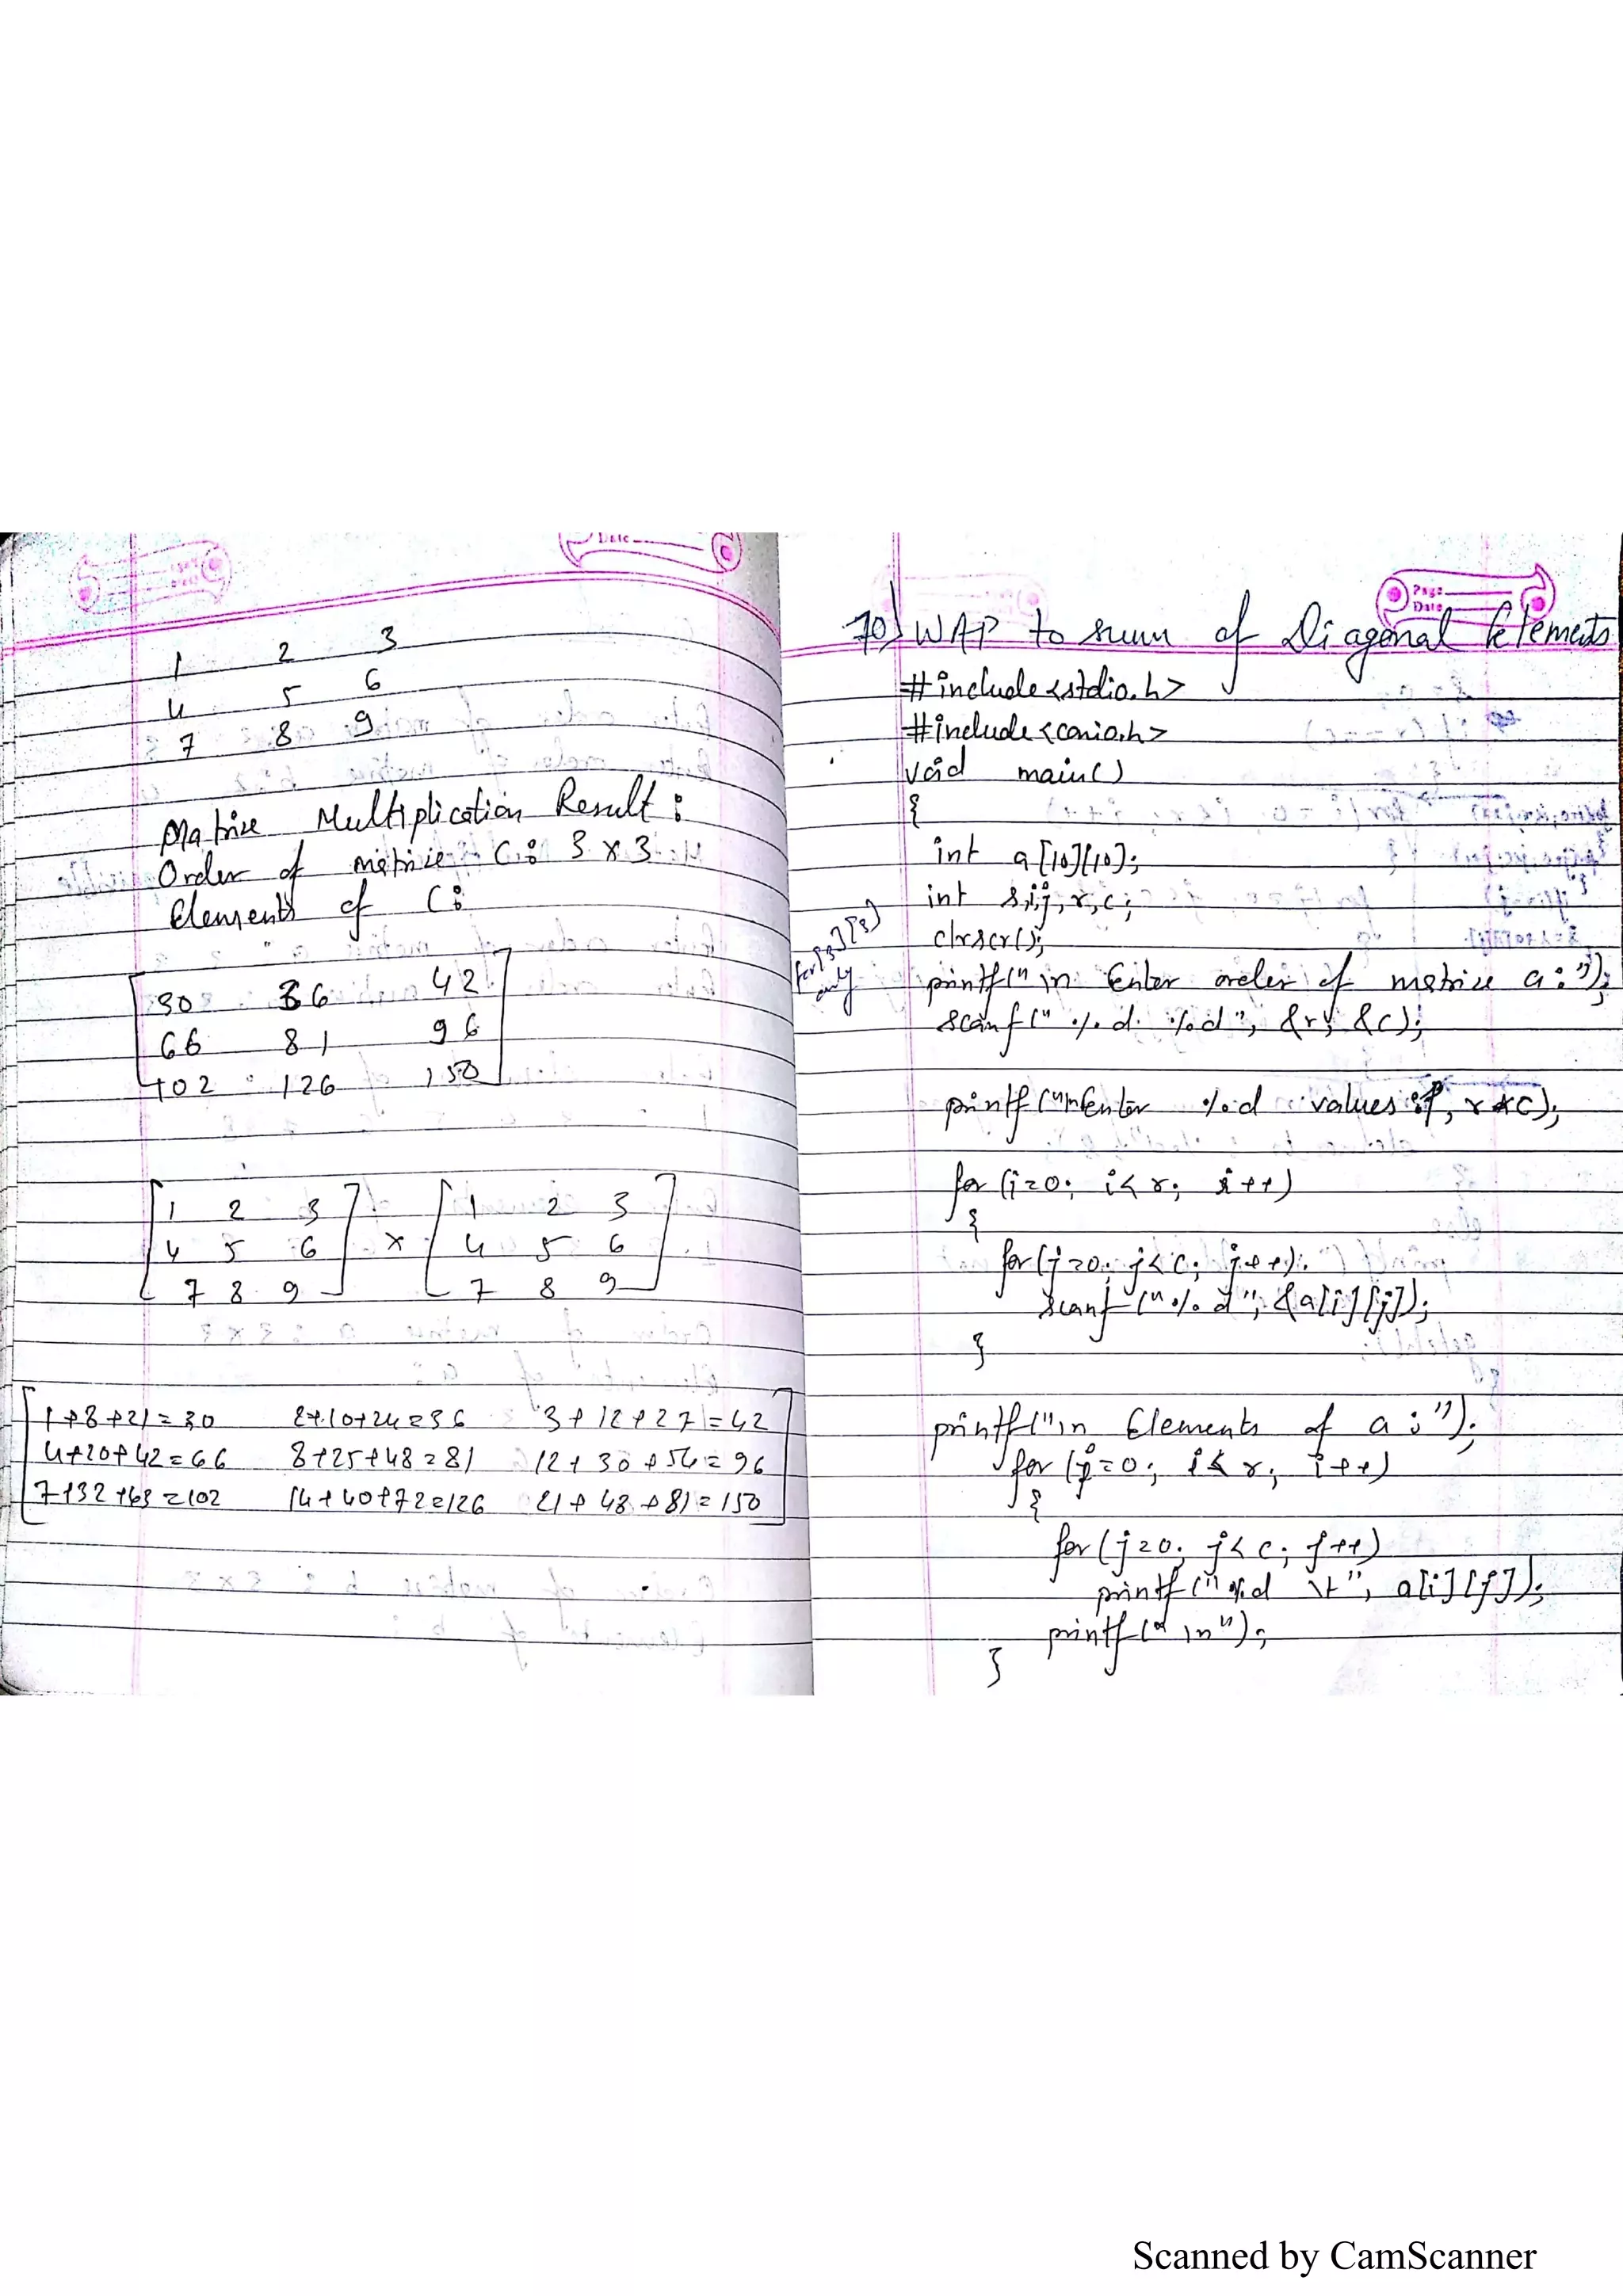 1 2 3
4 5 6
7 8 9
Matrix Multiplication Result :
Order of matrix C : 3 x 3
Elements of C :
30 36 42
66 81 96
102 126 150
1 2 3 1 2 3
4 5 6 x 4 5 6
7 8 9 7 8 9
1+8+21=30 2+10+24=36 3+12+27=42
4+20+42=66 8+25+48=81 12+30+54=96
7+32+63=102 14+40+72=126 21+48+81=150
Page
Date
70) WAP to sum of Diagonal Elements
#include<stdio.h>
#include<conio.h>
void main()
{
int a[10][10];
int s,i,j,r,c;
clrscr();
for [3][3]
only
printf("\n Enter order of matrix a:");
scanf("%d %d", &r, &c);
printf("\nEnter %d values:", r*c);
for(i=0; i<r; i++)
{
for(j=0; j<c; j++)
scanf("%d", &a[i][j]);
}
printf("\n Elements of a:");
for(i=0; i<r; i++)
{
for(j=0; j<c; j++)
printf("%d \t", a[i][j]);
printf("\n");
}
Scanned by CamScanner